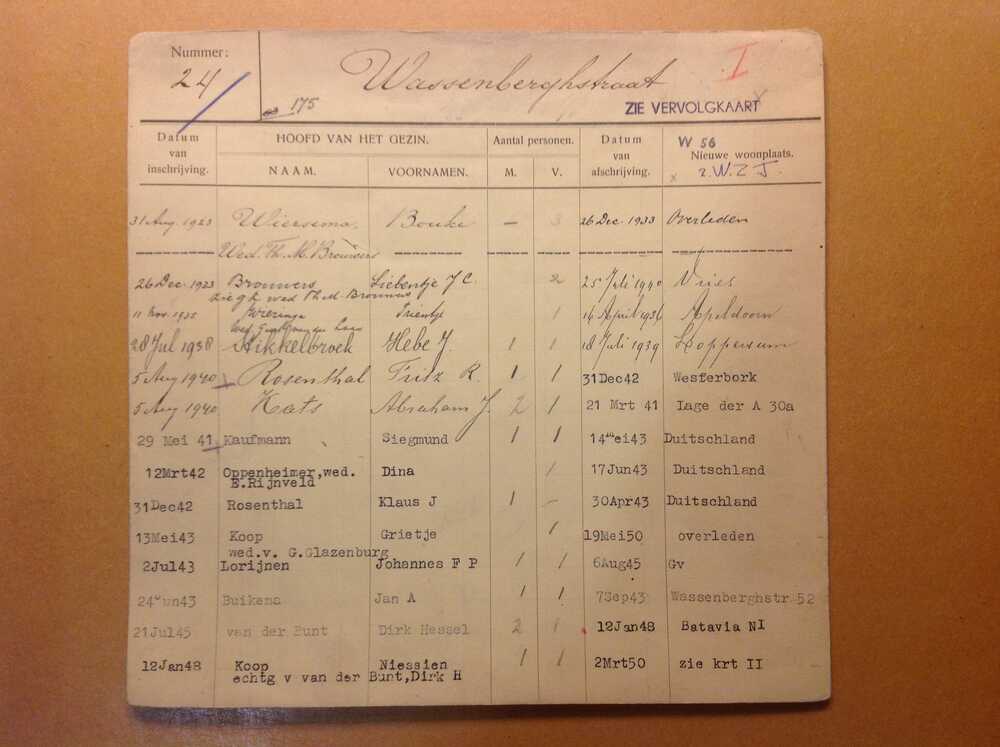 Nummer:
24
175
Wassenberghstraat
I
ZIE VERVOLGKAART
Datum van inschrijving.
HOOFD VAN HET GEZIN.
NAAM.
VOORNAMEN.
Aantal personen.
M.
V.
Datum van afschrijving.
W 56
Nieuwe woonplaats.
2. W. Z J.
31 Aug. 1923 Wiersema. Bouke — 3 26 Dec. 1933 Overleden
Wed. Th. M. Brouwers
26 Dec. 1923 Brouwers Siebentje J C. 2 25 Juli 1940 Vries
zie gk wed Th. M. Brouwers
11 Nov. 1935 Wieringa Trientje 1 14 April 1936 Apeldoorn
28 Jul 1938 Stikkelbroek Hebe J. 1 1 18 Juli 1939 Loppersum
5 Aug 1940 Rosenthal Fritz R. 1 1 31Dec42 Westerbork
5 Aug 1940 Kats Abraham J. 2 1 21 Mrt 41 Lage der A 30a
29 Mei 41 Kaufmann Siegmund 1 1 14mei43 Duitschland
12Mrt42 Oppenheimer,wed. Dina 1 17Jun43 Duitschland
E.Rijnveld
31Dec42 Rosenthal Klaus J 1 – 30Apr43 Duitschland
13Mei43 Koop Grietje 1 19Mei50 overleden
wed.v. G.Glazenburg
2Jul43 Lorijnen Johannes F P 1 1 6Aug45 Gv
24Jun43 Buikema Jan A 1 1 7Sep43 Wassenberghstr 52
21Jul45 van der Bunt Dirk Hessel 2 1 12Jan48 Batavia NI
12Jan48 Koop Niessien 1 1 2Mrt50 zie krt II
echtg v van der Bunt,Dirk H